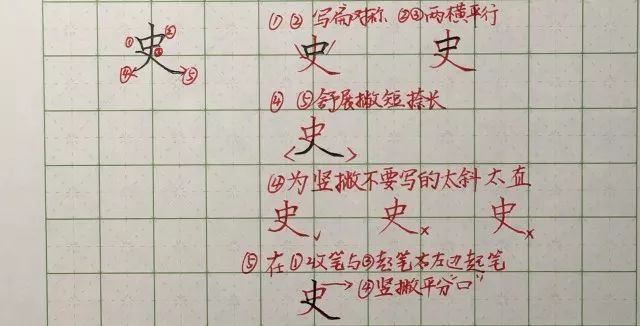 史 ① ② ③ ④ ⑤
①②写扁对称 ②③两横平行
史 史
④ ⑤舒展撇短捺长
史
④为竖撇不要写的太斜太直
史✓ 史× 史×
⑤在①收笔与③起笔右左边起笔
史→④竖撇平分“口”